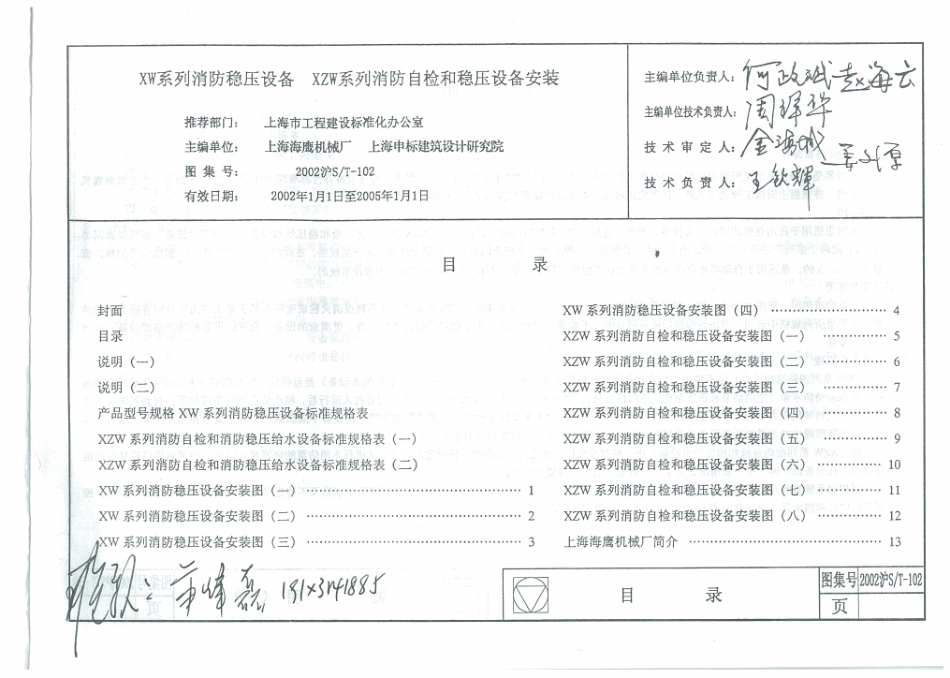 XW系列消防稳压设备 XZW系列消防自检和稳压设备安装
推荐部门： 上海市工程建设标准化办公室
主编单位： 上海海鹰机械厂 上海申标建筑设计研究院
图集号： 2002沪S/T-102
有效日期： 2002年1月1日至2005年1月1日
主编单位负责人：
主编单位技术负责人：
技术审定人：
技术负责人：
目 录
封面
目录
说明（一）
说明（二）
产品型号规格 XW 系列消防稳压设备标准规格表
XZW 系列消防自检和消防稳压给水设备标准规格表（一）
XZW 系列消防自检和消防稳压给水设备标准规格表（二）
XW 系列消防稳压设备安装图（一） 1
XW 系列消防稳压设备安装图（二） 2
XW 系列消防稳压设备安装图（三） 3
XW 系列消防稳压设备安装图（四） 4
XZW 系列消防自检和稳压设备安装图（一） 5
XZW 系列消防自检和稳压设备安装图（二） 6
XZW 系列消防自检和稳压设备安装图（三） 7
XZW 系列消防自检和稳压设备安装图（四） 8
XZW 系列消防自检和稳压设备安装图（五） 9
XZW 系列消防自检和稳压设备安装图（六） 10
XZW 系列消防自检和稳压设备安装图（七） 11
XZW 系列消防自检和稳压设备安装图（八） 12
上海海鹰机械厂简介 13
目 录
图集号 2002沪S/T-102
页